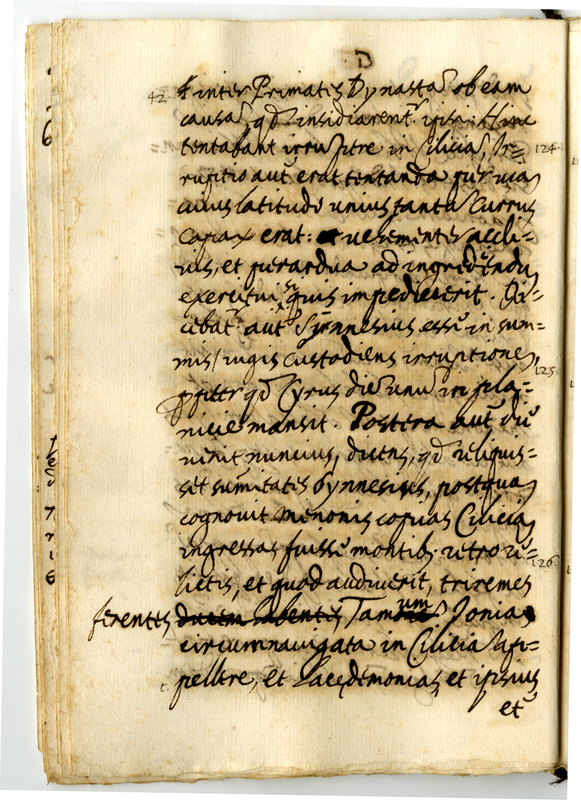 42. & inter Primatis Dynasta͂ ob eam
causa͂, qd͂ insidiarent͂ ipsi. Hinc
tentabant irru͂pere in Cilicia͂, Ir= 124.
ruptio aut͂ erat tentanda pur uia͂
cuius latitudo unius tantu͂ Currus
Capax erat: uehementer accli=
uis, et perardua ad ingrediendu͂
exercitui, si quis impedierit. Di=
cebat͂ aut͂ Synnesius esse in sum=
mis iugis custodiens irruptione͂,
ppter qd͂ Cyrus die͂ unu͂ in pla= 125.
nicie mansit. Postera aut͂ die
uenit nuncius, dicens, qd͂ reliquis=
set sumitates Synnesius, postqua͂
cognouit Menonis copias Cilicia͂
ingressas fuisse montib. retro re= 126.
lictis, et quod audiverit, triremes
ferentes Tamum Ionia
circumnauigata in Cilicia͂ a
pellere, et Lacedemonias et ipsius
et